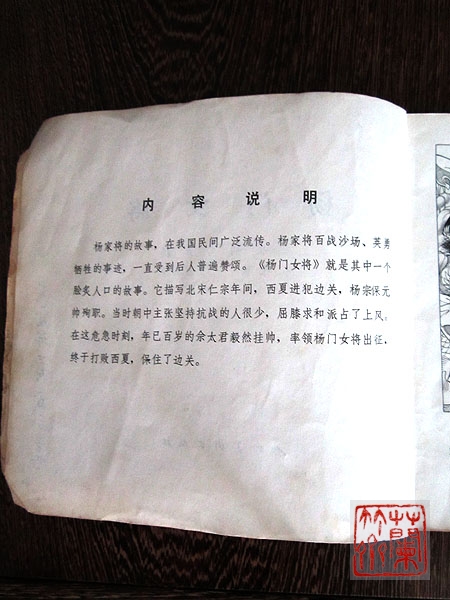 内容说明
杨家将的故事，在我国民间广泛流传。杨家将百战沙场、英勇
牺牲的事迹，一直受到后人普遍赞颂。《杨门女将》就是其中一个
脍炙人口的故事。它描写北宋仁宗年间，西夏进犯边关，杨宗保元
帅殉职。当时朝中主张坚持抗战的人很少，屈膝求和派占了上风；
在这危急时刻，年已百岁的佘太君毅然挂帅，率领杨门女将出征，
终于打败西夏，保住了边关。